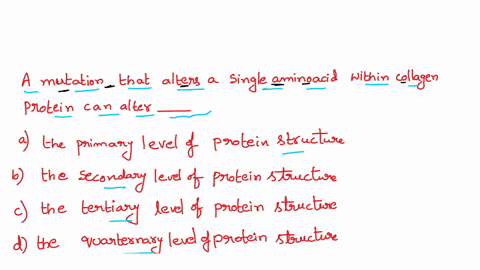 A mutation that alters a single aminoacid within collagen
Protein can alter ____
a) the primary level of protein structure
b) the secondary level of protein structure
c) the tertiary level of protein structure
d) the quarternary level of protein structure